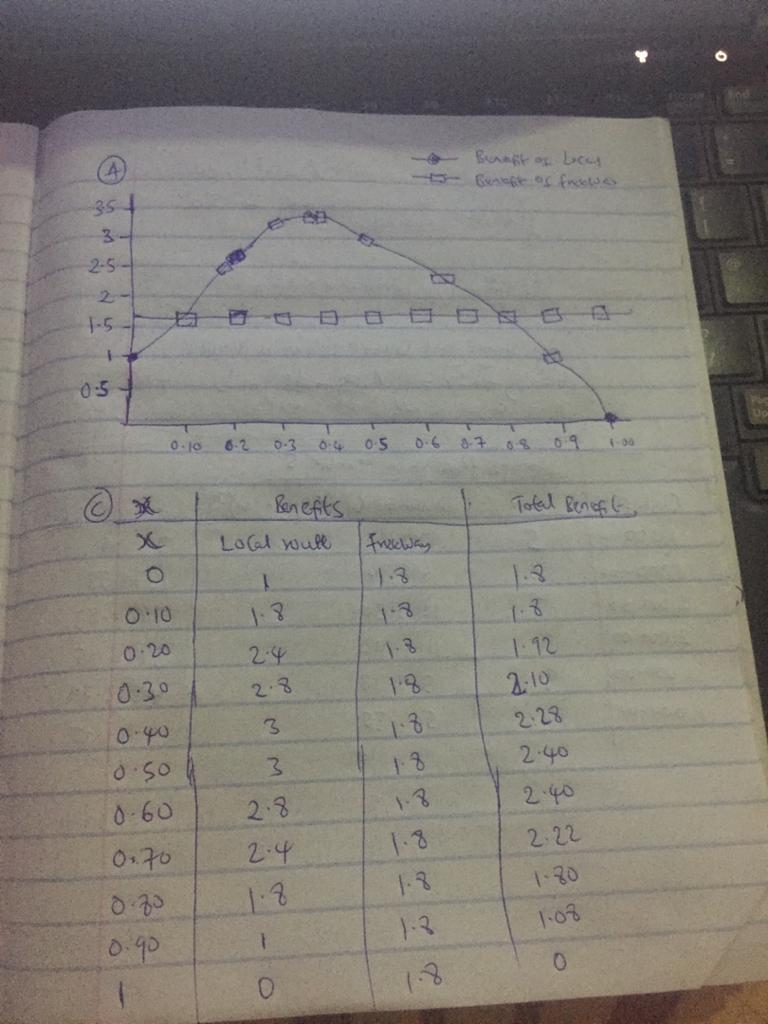 A
Benefit of Local
Benefit of freeway
3.5
3
2.5
2
1.5
1
0.5
0.10 0.2 0.3 0.4 0.5 0.6 0.7 0.8 0.9 1.00
C Benefits Total Benefit
x Local route freeway
0 1 1.8 1.8
0.10 1.8 1.8 1.8
0.20 2.4 1.8 1.92
0.30 2.8 1.8 2.10
0.40 3 1.8 2.28
0.50 3 1.8 2.40
0.60 2.8 1.8 2.40
0.70 2.4 1.8 2.22
0.80 1.8 1.8 1.80
0.90 1 1.8 1.08
1 0 1.8 0